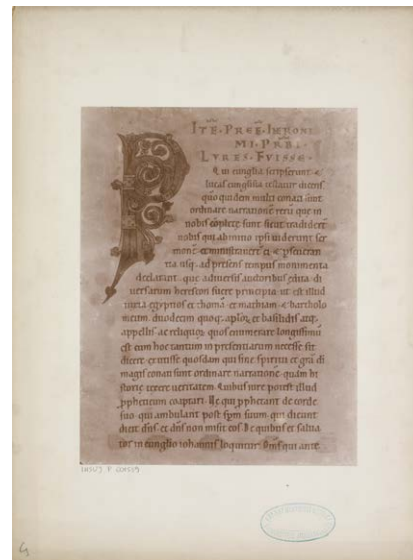 ITĒ · PREF̄ · IHERONI
MI · PRB̄I ·
LVRES · FVISSE ·
Qui eungĺia scripserunt &
lucas eunglista testatur dicens
quo quidem multi conati sunt
ordinare narrationē rerū que in
nobis cōplete sunt sicut tradiderī
nobis qui ab initio ipsi uiderunt ser
monē et ministraverī ei & pseueran
tia usq; ad presens tempus monimenta
declarant · que a diuersis auctoribus edita di
uersarum heresion fuere principia · ut est illud
iuxta egyptios et thomā · et mathiam · & bartholo
meum · duodecim quoq; aplōꝝ · et basilidis atq;
appellis ac reliquoꝝ quos enumerare longissimū
est cum hoc tantum in presentiarum necesse sit
dicere extitisse quosdam qui sine spiritu et grā dī
magis conati sunt ordinare narrationē · quam hi
storię texere ueritatem. Quibus iure potest illud
ppheticum coaptari · Ve qui pphetant de corde
suo · qui ambulant post spm̄ suum · qui dicunt
dicit dn̄s · et dn̄s non misit eos · De quibus et salua
tor in eunglio iohannis loquitur · Om̄s qui ante